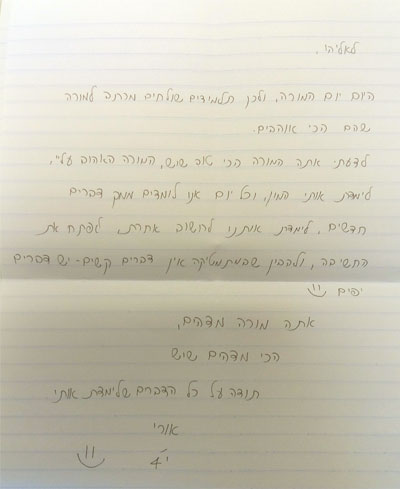 לאליהי.
היום יום המורה, ולכן תלמידים שולחים מכתב למורה
שהם הכי אוהבים.
לדעתי אתה המורה הכי טוב שיש, המורה האהוב עלי,
לימדת אותי המון, וכל יום אנו לומדים ממך דברים
חדשים, לימדת אותנו לחשוב אחרת, לפתח את
החשיבה, ולהבין שבמתמטיקה אין דברים קשים - יש דברים
יפים
אתה מורה מדהים,
הכי מדהים שיש
תודה על כל הדברים שלימדת אותי
אורי
י'4